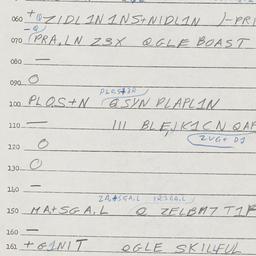 060 + ZIDL1N1NS+NIDL1N )-PRI
070 (PRA,LN Z3X QGLE BOAST
080 —
090 O
PLQS+3R
100 PLOS+N QSYN PLAPL1N
110 — III BLE,JK1CN QAF
ZUG+ D1
120 O
130 O
140 —
ZA+SGA,L 1R3GA,L
150 MA+SGA,L Q ZELBM7 T1F
160 —
161 + G1NIT QGLE SKILLFUL